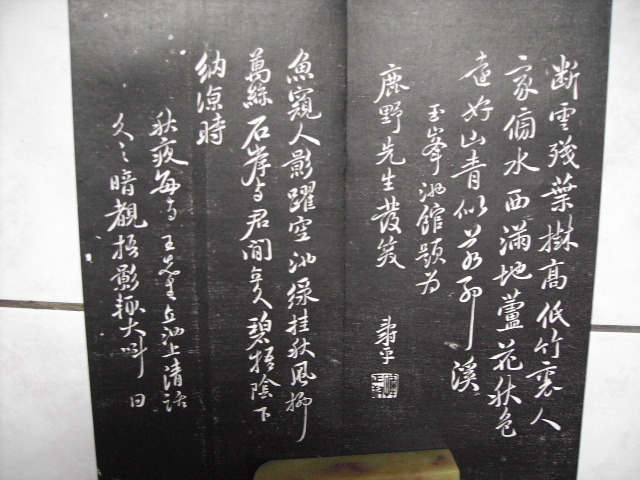 断雲殘葉樹高低竹裏人
家傍水西滿地蘆花秋色
遠好山青似若耶溪
玉峯池館題为
鹿野先生發笑
魚窺人影躍空池綠挂秋風柳
萬絲石岸与君閒立久碧梧陰下
納涼時
秋夜每与王先生立池上清話
久之暗觀梧影極大叫曰